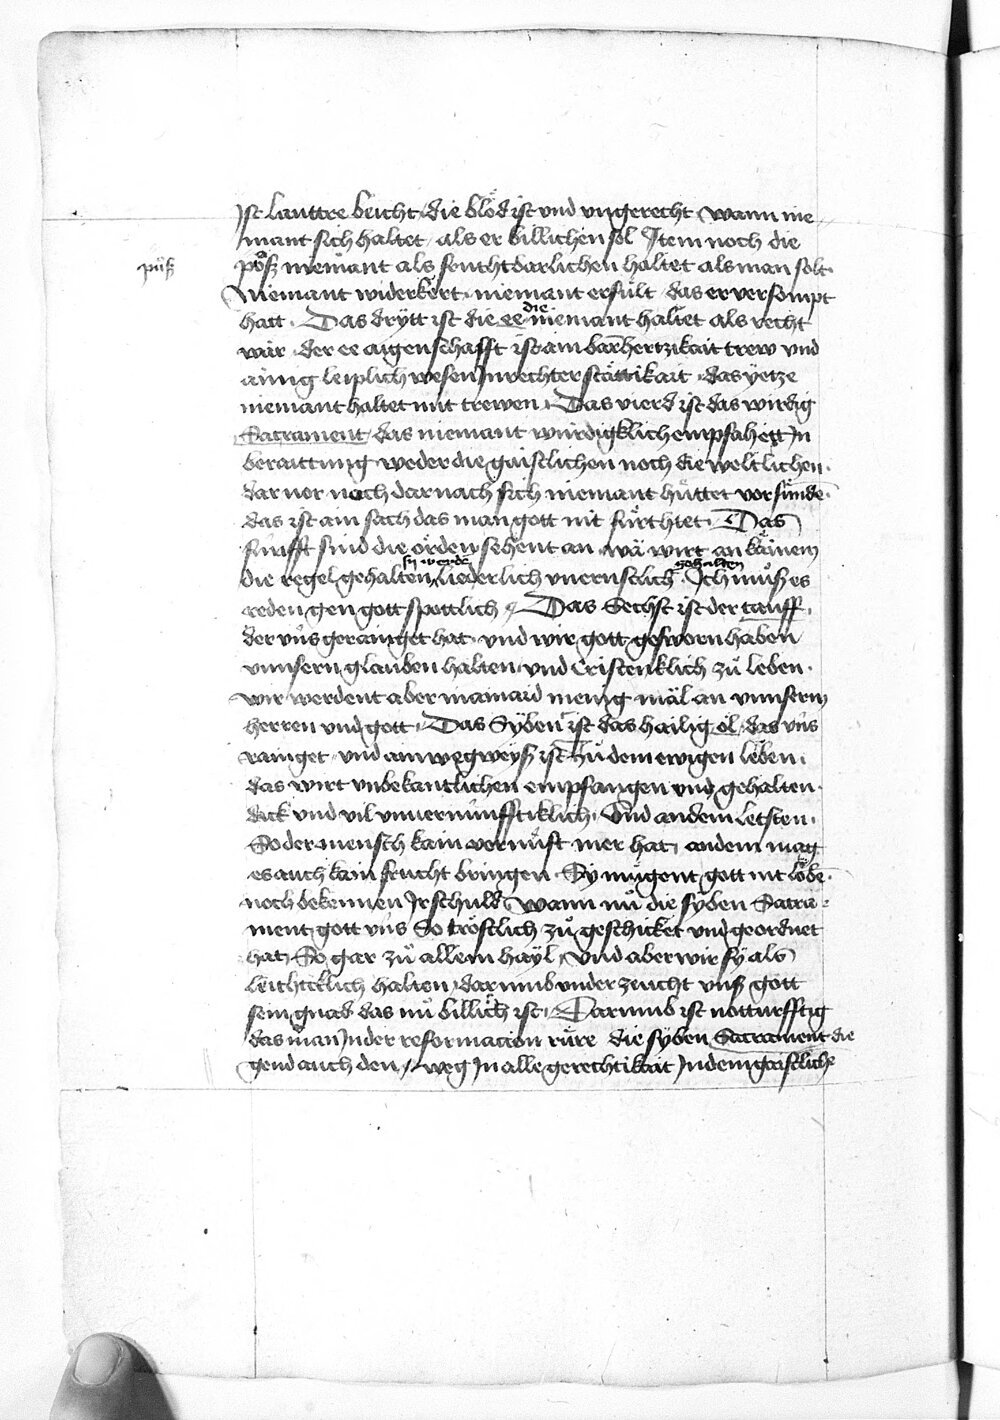 Ist lauttre beicht, die blöd ist vnd vngerecht, wann nie
mant sich haltet, als er billichen sol Item noch die
püß
pöß niemant als fruchtbarlichen haltet als man solt.
Niemant widerkert. niemant erfült, das er versompt
hatt. Das drytt ist die ee die niemant haltet als recht
wär, der ee aigenschafft ist ain barmhertzikait trew vnd
ainig leiplich wesen In rechter stättikait, das yetze
niemant haltet mit trewen. Das vierd ist das wirdig
Sacrament, das niemant würdigklich empfahet In
beraittung weder die gaistlichen noch die weltlichen.
dar vor noch dar nach sich niemant hüttet vor sünde.
das ist ain sach das man gott nit fürchtet. Das
fünfft sind die örden sehent an, wa wirt an kainem
die regel gehalten, sy werde liederlich vnernstlich gehalten. Ich müß es
reden gen gott spottlich. Das Sechst ist der tauff.
der vns gerainget hat. vnd wir gott gesworn haben
vnnsern glauben halten vnd Cristenlich zü leben.
wir werdent aber mainaid menig mäl an vnnserm
herren vnd gott. Das Syben ist das hailig öl, das vns
rainget, vnd ain wegweyß ist zü dem ewigen leben.
das wirt vnbekantlichen empfangen vnd gehalten.
dick vnd vil vnuernünfftiklich. Vnd an dem letsten.
So der mensch kain vernuft mer hat, an dem mag
es auch kain frucht bringen. Sy mügent gott nit lobe.
noch bekennen Ir schuld. Wann nü die syben Sacra-
ment gott vns So tröstlich zü geschicket vnd geordnet
hat, So gar zü allem hayl, Vnd aber wir sy als
leichticklich halten, dar vmb vnder zeucht vnß gott
sein gnad das nü billich ist. Darumb ist notturfftig
das man In der reformacion rüre die syben Sacrament die
gend auch den, weg In alle gerechtikait In dem gaistliche